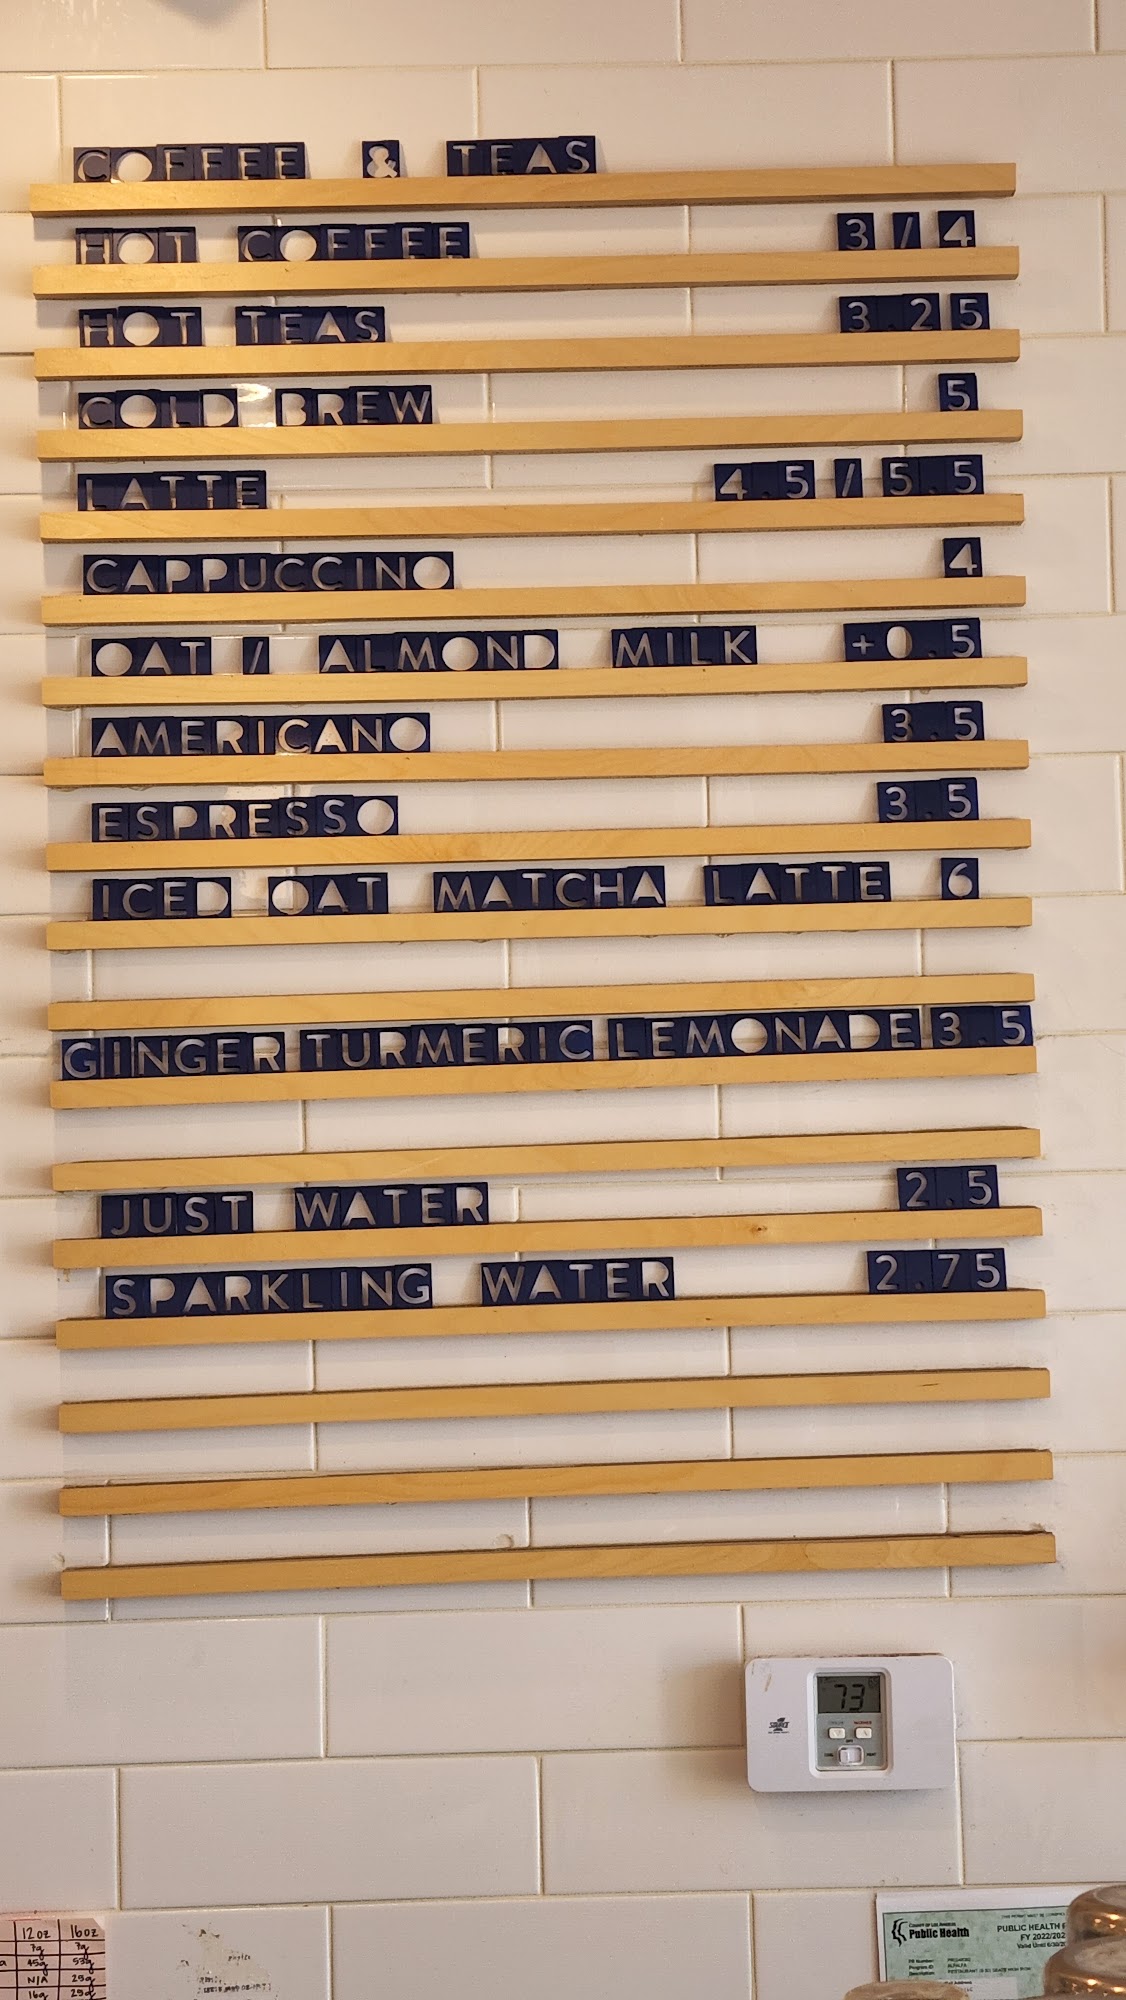 COFFEE & TEAS
HOT COFFEE 3/4
HOT TEAS 3.25
COLD BREW 5
LATTE 4.5/5.5
CAPPUCCINO 4
OAT / ALMOND MILK +0.5
AMERICANO 3.5
ESPRESSO 3.5
ICED OAT MATCHA LATTE 6
GINGER TURMERIC LEMONADE 3.5
JUST WATER 2.5
SPARKLING WATER 2.75
73
12oz 16oz
7g 7g
45g 53g
N/A 25g
16g 25g
COUNTY OF LOS ANGELES
Public Health
PUBLIC HEALTH
FY 2022/202
Valid Until 6/30/